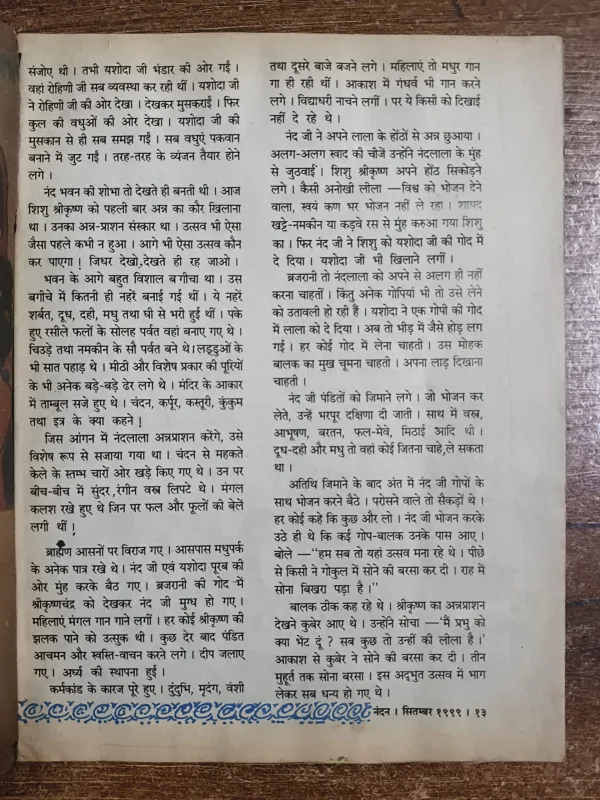 संजोए थी । तभी यशोदा जी भंडार की ओर गईं ।
वहां रोहिणी जी सब व्यवस्था कर रही थीं । यशोदा जी
ने रोहिणी जी की ओर देखा । देखकर मुसकराईं । फिर
कुल की वधुओं की ओर देखा । यशोदा जी की
मुसकान से ही सब समझ गईं । सब वधुएं पकवान
बनाने में जुट गईं । तरह-तरह के व्यंजन तैयार होने
लगे ।
नंद भवन की शोभा तो देखते ही बनती थी । आज
शिशु श्रीकृष्ण को पहली बार अन्न का कौर खिलाना
था । उनका अन्न-प्राशन संस्कार था । उत्सव भी ऐसा
जैसा पहले कभी न हुआ । आगे भी ऐसा उत्सव कौन
कर पाएगा ! जिधर देखो,देखते ही रह जाओ ।
भवन के आगे बहुत विशाल बगीचा था । उस
बगीचे में कितनी ही नहरें बनाई गई थीं । ये नहरें
शर्बत, दूध, दही, मधु तथा घी से भरी हुई थीं । पके
हुए रसीले फलों के सोलह पर्वत वहां बनाए गए थे ।
चिउड़े तथा नमकीन के सौ पर्वत बने थे।लड्डुओं के
भी सात पहाड़ थे । मीठी और विशेष प्रकार की पूरियों
के भी अनेक बड़े-बड़े ढेर लगे थे । मंदिर के आकार
में ताम्बूल सजे हुए थे । चंदन, कर्पूर, कस्तूरी, कुंकुम
तथा इत्र के क्या कहने !
जिस आंगन में नंदलाला अन्नप्राशन करेंगे, उसे
विशेष रूप से सजाया गया था । चंदन से महकते
केले के स्तम्भ चारों ओर खड़े किए गए थे । उन पर
बीच-बीच में सुंदर,रंगीन वस्त्र लिपटे थे । मंगल
कलश रखे हुए थे जिन पर फल और फूलों की बेलें
लगी थीं !
ब्राह्मण आसनों पर विराज गए । आसपास मधुपर्क
के अनेक पात्र रखे थे । नंद जी एवं यशोदा पूरब की
ओर मुंह करके बैठ गए । ब्रजरानी की गोद में
श्रीकृष्णचंद्र को देखकर नंद जी मुग्ध हो गए ।
महिलाएं मंगल गान गाने लगीं । हर कोई श्रीकृष्ण की
झलक पाने को उत्सुक थी । कुछ देर बाद पंडित
आचमन और स्वस्ति-वाचन करने लगे । दीप जलाए
गए । अर्घ्य की स्थापना हुई ।
कर्मकांड के कारज पूरे हुए । दुंदुभि, मृदंग, वंशी
तथा दूसरे बाजे बजने लगे । महिलाएं तो मधुर गान
गा ही रही थीं । आकाश में गंधर्व भी गान करने
लगे । विद्याधरी नाचने लगीं । पर ये किसी को दिखाई
नहीं दे रहे थे ।
नंद जी ने अपने लाला के होंठों से अन्न छुआया ।
अलग-अलग स्वाद की चीजें उन्होंने नंदलाला के मुंह
से जुठवाईं । शिशु श्रीकृष्ण अपने होंठ सिकोड़ने
लगे । कैसी अनोखी लीला —विश्व को भोजन देने
वाला, स्वयं कण भर भोजन नहीं ले रहा । शायद
खट्टे-नमकीन या कड़वे रस से मुंह करुआ गया शिशु
का । फिर नंद जी ने शिशु को यशोदा जी की गोद में
दे दिया । यशोदा जी भी खिलाने लगीं ।
ब्रजरानी तो नंदलाला को अपने से अलग ही नहीं
करना चाहतीं । किंतु अनेक गोपियां भी तो उसे लेने
को उतावली हो रही हैं । यशोदा ने एक गोपी की गोद
में लाला को दे दिया । अब तो भीड़ में जैसे होड़ लग
गई । हर कोई गोद में लेना चाहती । उस मोहक
बालक का मुख चूमना चाहती । अपना लाड़ दिखाना
चाहती ।
नंद जी पंडितों को जिमाने लगे । जो भोजन कर
लेते, उन्हें भरपूर दक्षिणा दी जाती । साथ में वस्त्र,
आभूषण, बरतन, फल-मेवे, मिठाई आदि थी ।
दूध-दही और मधु तो वहां कोई जितना चाहे,ले सकता
था ।
अतिथि जिमाने के बाद अंत में नंद जी गोपों के
साथ भोजन करने बैठे । परोसने वाले तो सैकड़ों थे ।
हर कोई कहे कि कुछ और लो । नंद जी भोजन करके
उठे ही थे कि कई गोप-बालक उनके पास आए ।
बोले —"हम सब तो यहां उत्सव मना रहे थे । पीछे
से किसी ने गोकुल में सोने की बरसा कर दी । राह में
सोना बिखरा पड़ा है ।"
बालक ठीक कह रहे थे । श्रीकृष्ण का अन्नप्राशन
देखने कुबेर आए थे । उन्होंने सोचा —'मैं प्रभु को
क्या भेंट दूं ? सब कुछ तो उन्हीं की लीला है ।'
आकाश से कुबेर ने सोने की बरसा कर दी । तीन
मुहूर्त तक सोना बरसा । इस अद्भुत उत्सव में भाग
लेकर सब धन्य हो गए थे ।
नंदन । सितम्बर १९९९ । १३